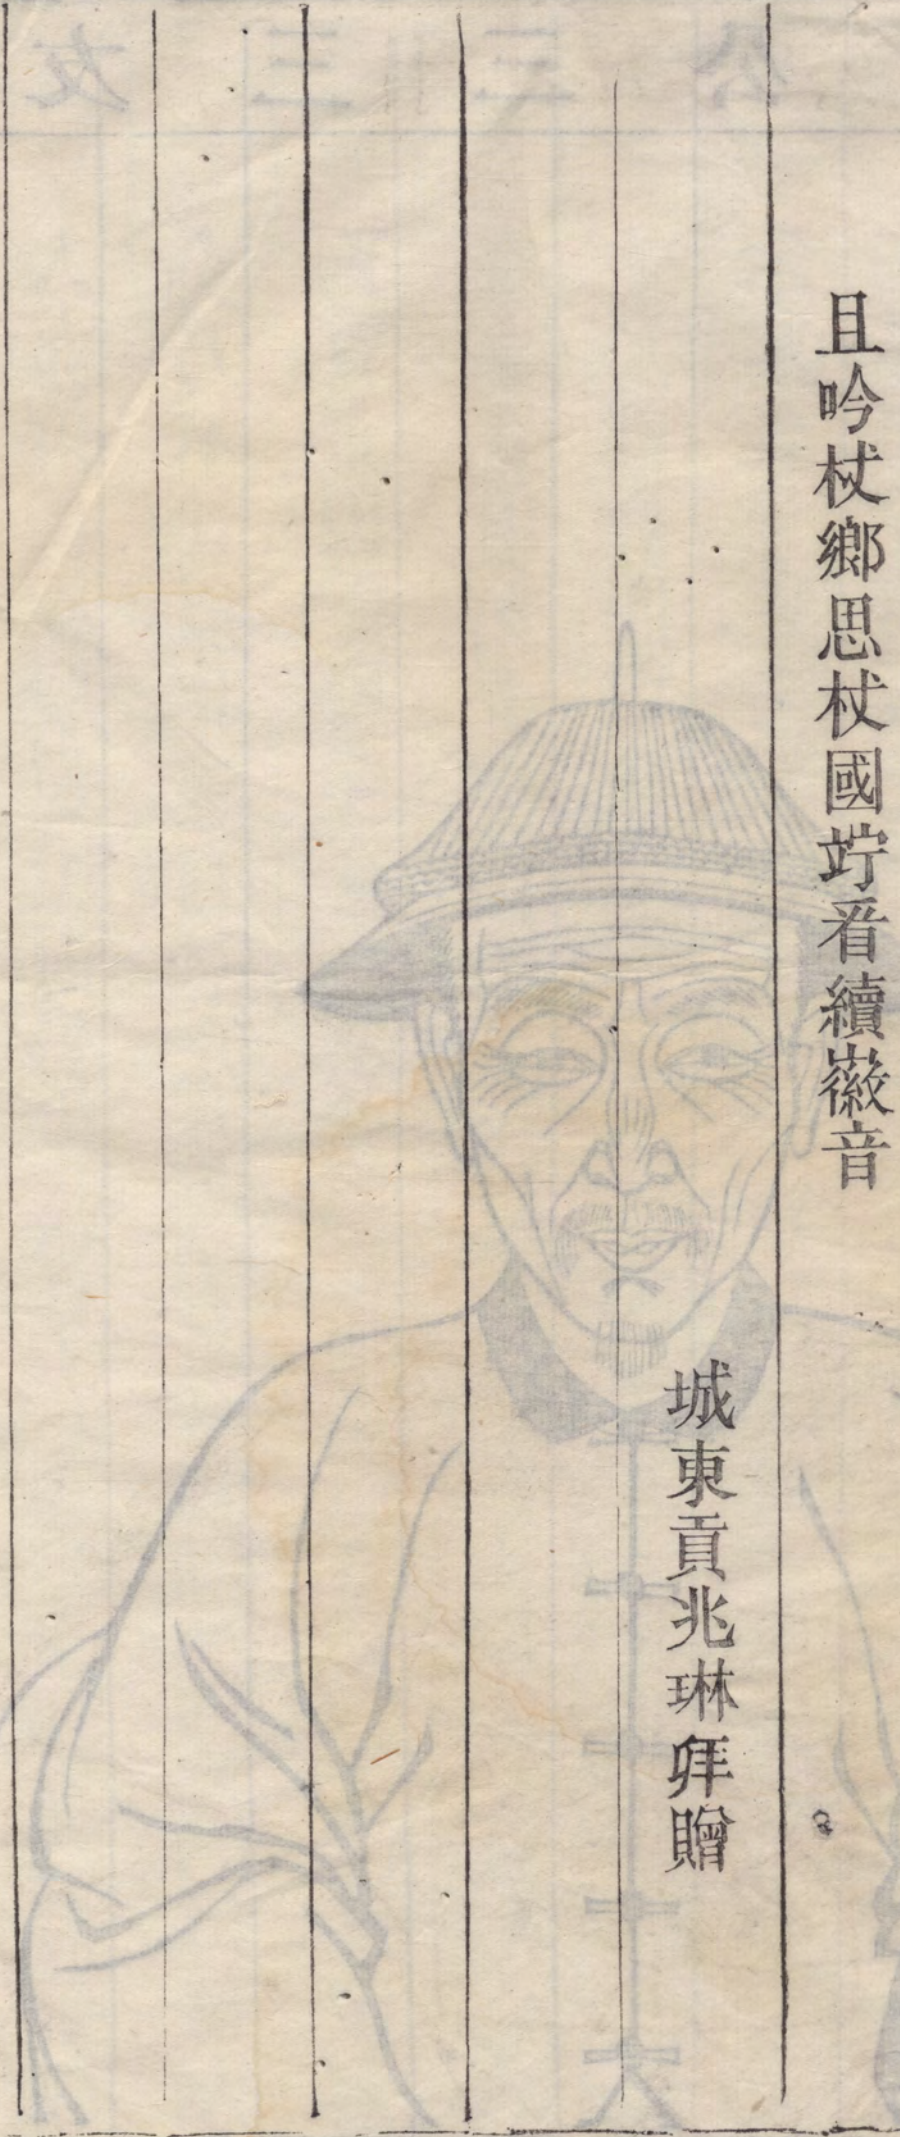 且吟杖鄉思杖國竚看續徽音
城東貢兆琳拜贈